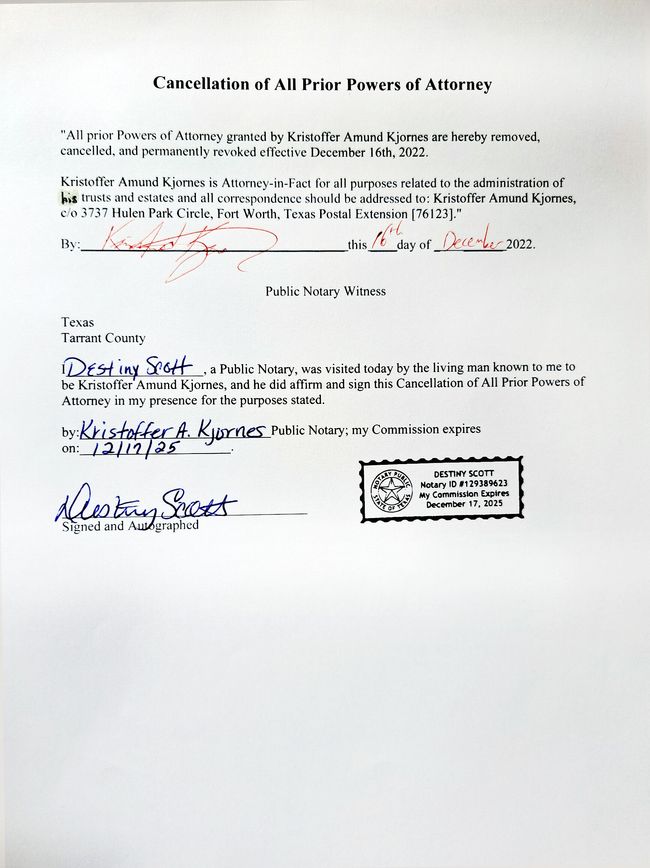 Cancellation of All Prior Powers of Attorney
"All prior Powers of Attorney granted by Kristoffer Amund Kjornes are hereby removed,
cancelled, and permanently revoked effective December 16th, 2022.
Kristoffer Amund Kjornes is Attorney-in-Fact for all purposes related to the administration of
his trusts and estates and all correspondence should be addressed to: Kristoffer Amund Kjornes,
c/o 3737 Hulen Park Circle, Fort Worth, Texas Postal Extension [76123]."
By: this 16th day of December 2022.
Public Notary Witness
Texas
Tarrant County
I Destiny Scott, a Public Notary, was visited today by the living man known to me to
be Kristoffer Amund Kjornes, and he did affirm and sign this Cancellation of All Prior Powers of
Attorney in my presence for the purposes stated.
by: Kristoffer A. Kjornes Public Notary; my Commission expires
on: 12/17/25.
Destiny Scott
Signed and Autographed
NOTARY PUBLIC
STATE OF TEXAS
DESTINY SCOTT
Notary ID #129389623
My Commission Expires
December 17, 2025